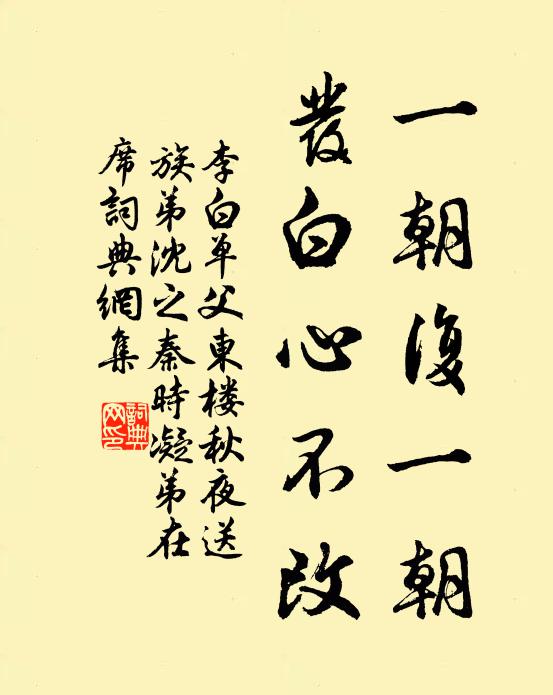 一朝復一朝
發白心不改
李白单父東楼秋夜送
族弟沈之秦時凝弟在
席詞典網集
詞典
网印